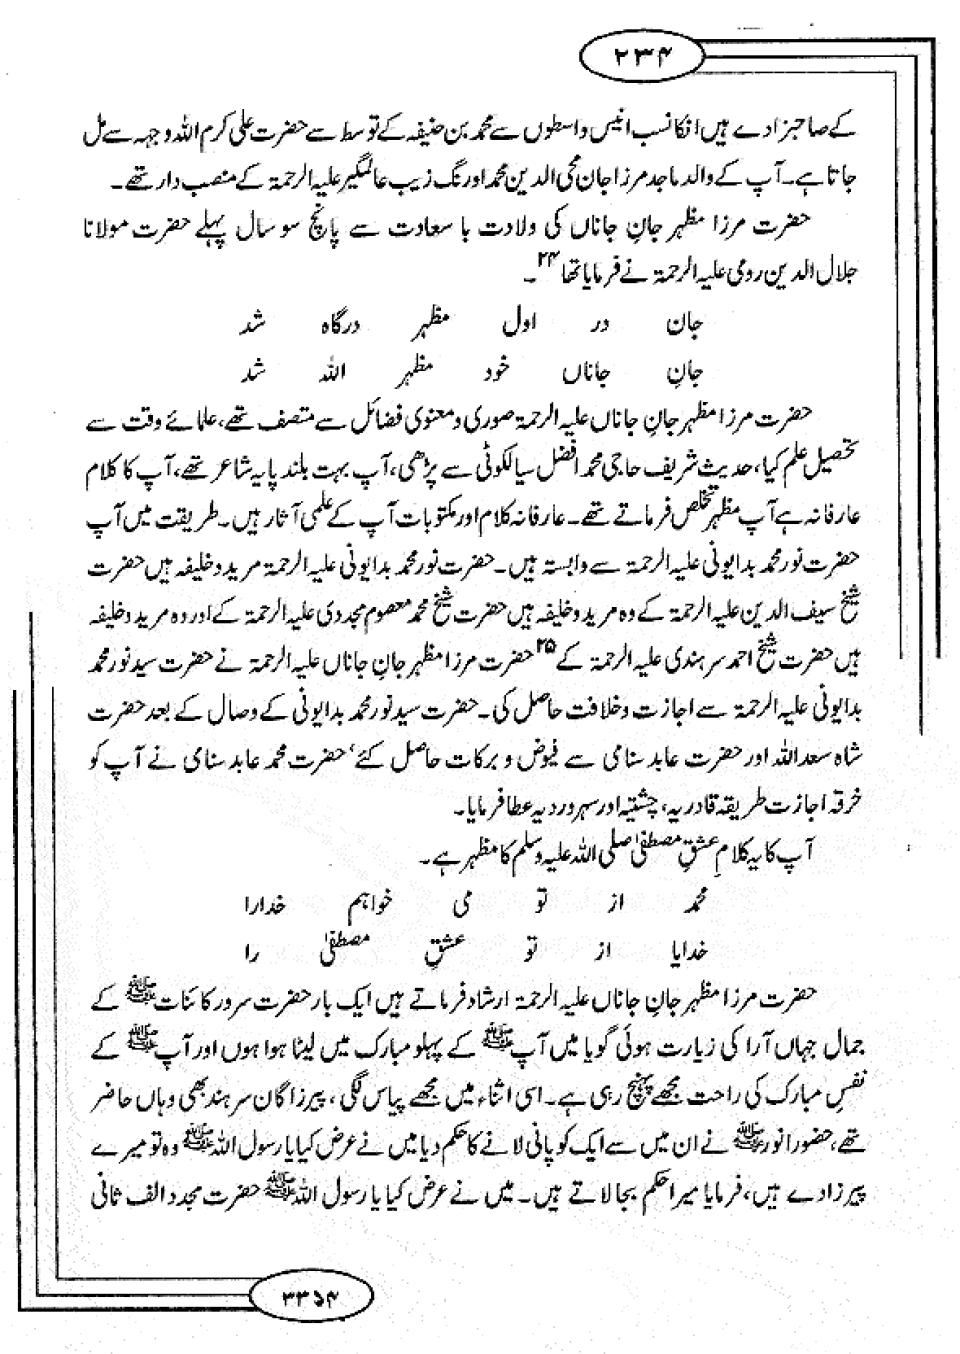 ۲۳۴
کے صاحبزادے ہیں انکا نسب انیس واسطوں سے محمد بن حنیفہ کے توسط سے حضرت علی کرم اللہ وجہہ سے مل
جاتا ہے۔ آپ کے والد ماجد مرزا جان محی الدین محمد اورنگ زیب عالمگیر علیہ الرحمۃ کے منصب دار تھے۔
حضرت مرزا مظہر جانِ جاناں کی ولادت با سعادت سے پانچ سو سال پہلے حضرت مولانا
جلال الدین رومی علیہ الرحمۃ نے فرمایا تھا ۲۴۔
جان در اول مظہر درگاہ شد
جانِ جاناں خود مظہر اللہ شد
حضرت مرزا مظہر جانِ جاناں علیہ الرحمۃ صوری و معنوی فضائل سے متصف تھے، علمائے وقت سے
تحصیل علم کیا، حدیث شریف حاجی محمد افضل سیالکوٹی سے پڑھی، آپ بہت بلند پایہ شاعر تھے، آپ کا کلام
عارفانہ ہے آپ مظہر تخلص فرماتے تھے۔ عارفانہ کلام اور مکتوبات آپ کے علمی آثار ہیں۔ طریقت میں آپ
حضرت نور محمد بدایونی علیہ الرحمۃ سے وابستہ ہیں۔ حضرت نور محمد بدایونی علیہ الرحمۃ مرید و خلیفہ ہیں حضرت
شیخ سیف الدین علیہ الرحمۃ کے وہ مرید و خلیفہ ہیں حضرت شیخ محمد معصوم مجددی علیہ الرحمۃ کے اور وہ مرید و خلیفہ
ہیں حضرت شیخ احمد سرہندی علیہ الرحمۃ کے ۲۵ حضرت مرزا مظہر جانِ جاناں علیہ الرحمۃ نے حضرت سید نور محمد
بدایونی علیہ الرحمۃ سے اجازت و خلافت حاصل کی۔ حضرت سید نور محمد بدایونی کے وصال کے بعد حضرت
شاہ سعد اللہ اور حضرت عابد سنامی سے فیوض و برکات حاصل کئے‘ حضرت محمد عابد سنامی نے آپ کو
خرقہ اجازت طریقہ قادریہ، چشتیہ اور سہروردیہ عطا فرمایا۔
آپ کا یہ کلام عشقِ مصطفیٰ صلی اللہ علیہ وسلم کا مظہر ہے۔
محمد از تو می خواہم خدارا
خدایا از تو عشقِ مصطفیٰ را
حضرت مرزا مظہر جانِ جاناں علیہ الرحمۃ ارشاد فرماتے ہیں ایک بار حضرت سرور کائنات ﷺ کے
جمال جہاں آرا کی زیارت ہوئی گویا میں آپ ﷺ کے پہلو مبارک میں لیٹا ہوا ہوں اور آپ ﷺ کے
نفس مبارک کی راحت مجھے پہنچ رہی ہے۔ اسی اثناء میں مجھے پیاس لگی، پیرزادگان سرہند بھی وہاں حاضر
تھے، حضور انور ﷺ نے ان میں سے ایک کو پانی لانے کا حکم دیا میں نے عرض کیا یا رسول اللہ ﷺ وہ تو میرے
پیرزادے ہیں، فرمایا میرا حکم بجا لاتے ہیں۔ میں نے عرض کیا یا رسول اللہ ﷺ حضرت مجدد الف ثانی